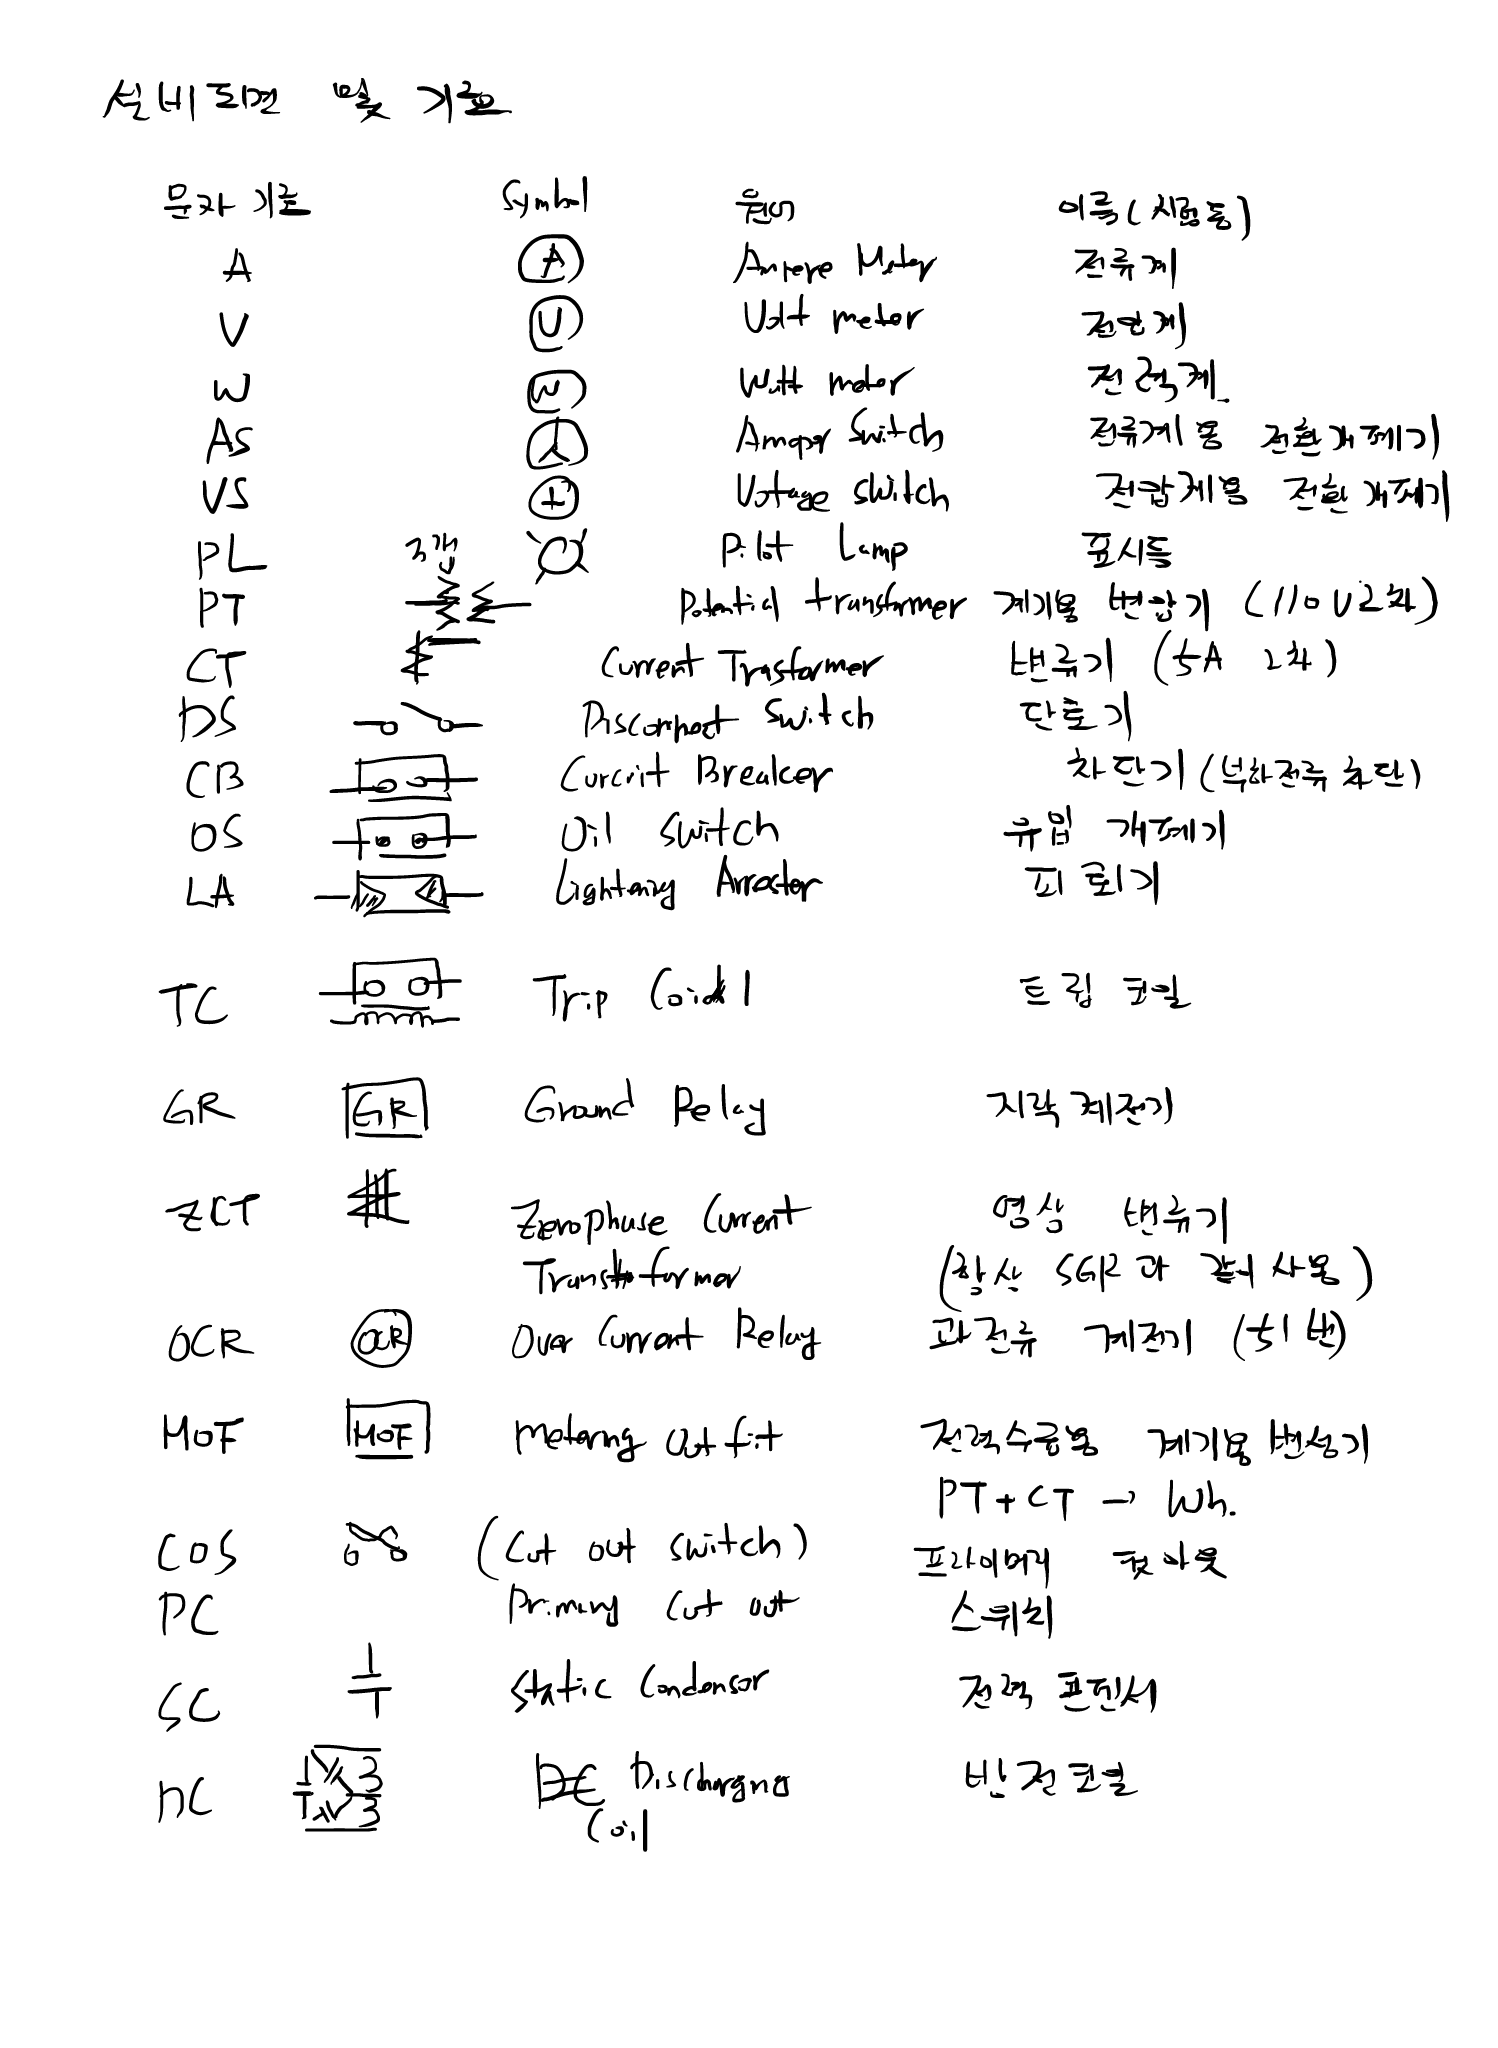 설비도면 및 기호
문자 기호 Symbol 원어 이름(시험등)
A A Ampere Meter 전류계
V V Volt meter 전압계
W W Watt meter 전력계.
AS Amper Switch 전류계용 전환개폐기
VS + Votage switch 전압계용 전환개폐기
PL 3개 Pilot Lamp 표시등
PT Potential transformer 계기용 변압기 (110V 2차)
CT Current Trasformer 변류기 (5A 2차)
DS Disconnect Switch 단로기
CB Curcrit Breaker 차단기 (부하전류 차단)
OS Oil switch 유입 개폐기
LA Lightening Arrester 피뢰기
TC Trip Coil 트립 코일
GR GR Ground Relay 지락계전기
ZCT Zerophase Current 영상 변류기
Transformer (항상 SGR과 같이 사용)
OCR OCR Over Current Relay 과전류 계전기 (51번)
MOF MOF Metering out fit 전력수급용 계기용변성기
PT+CT → Wh.
COS (Cut out switch) 프라이머리 컷아웃
PC Primary Cut out 스위치
SC Static Condensor 전력 콘덴서
DC Discharging 방전코일
Coil